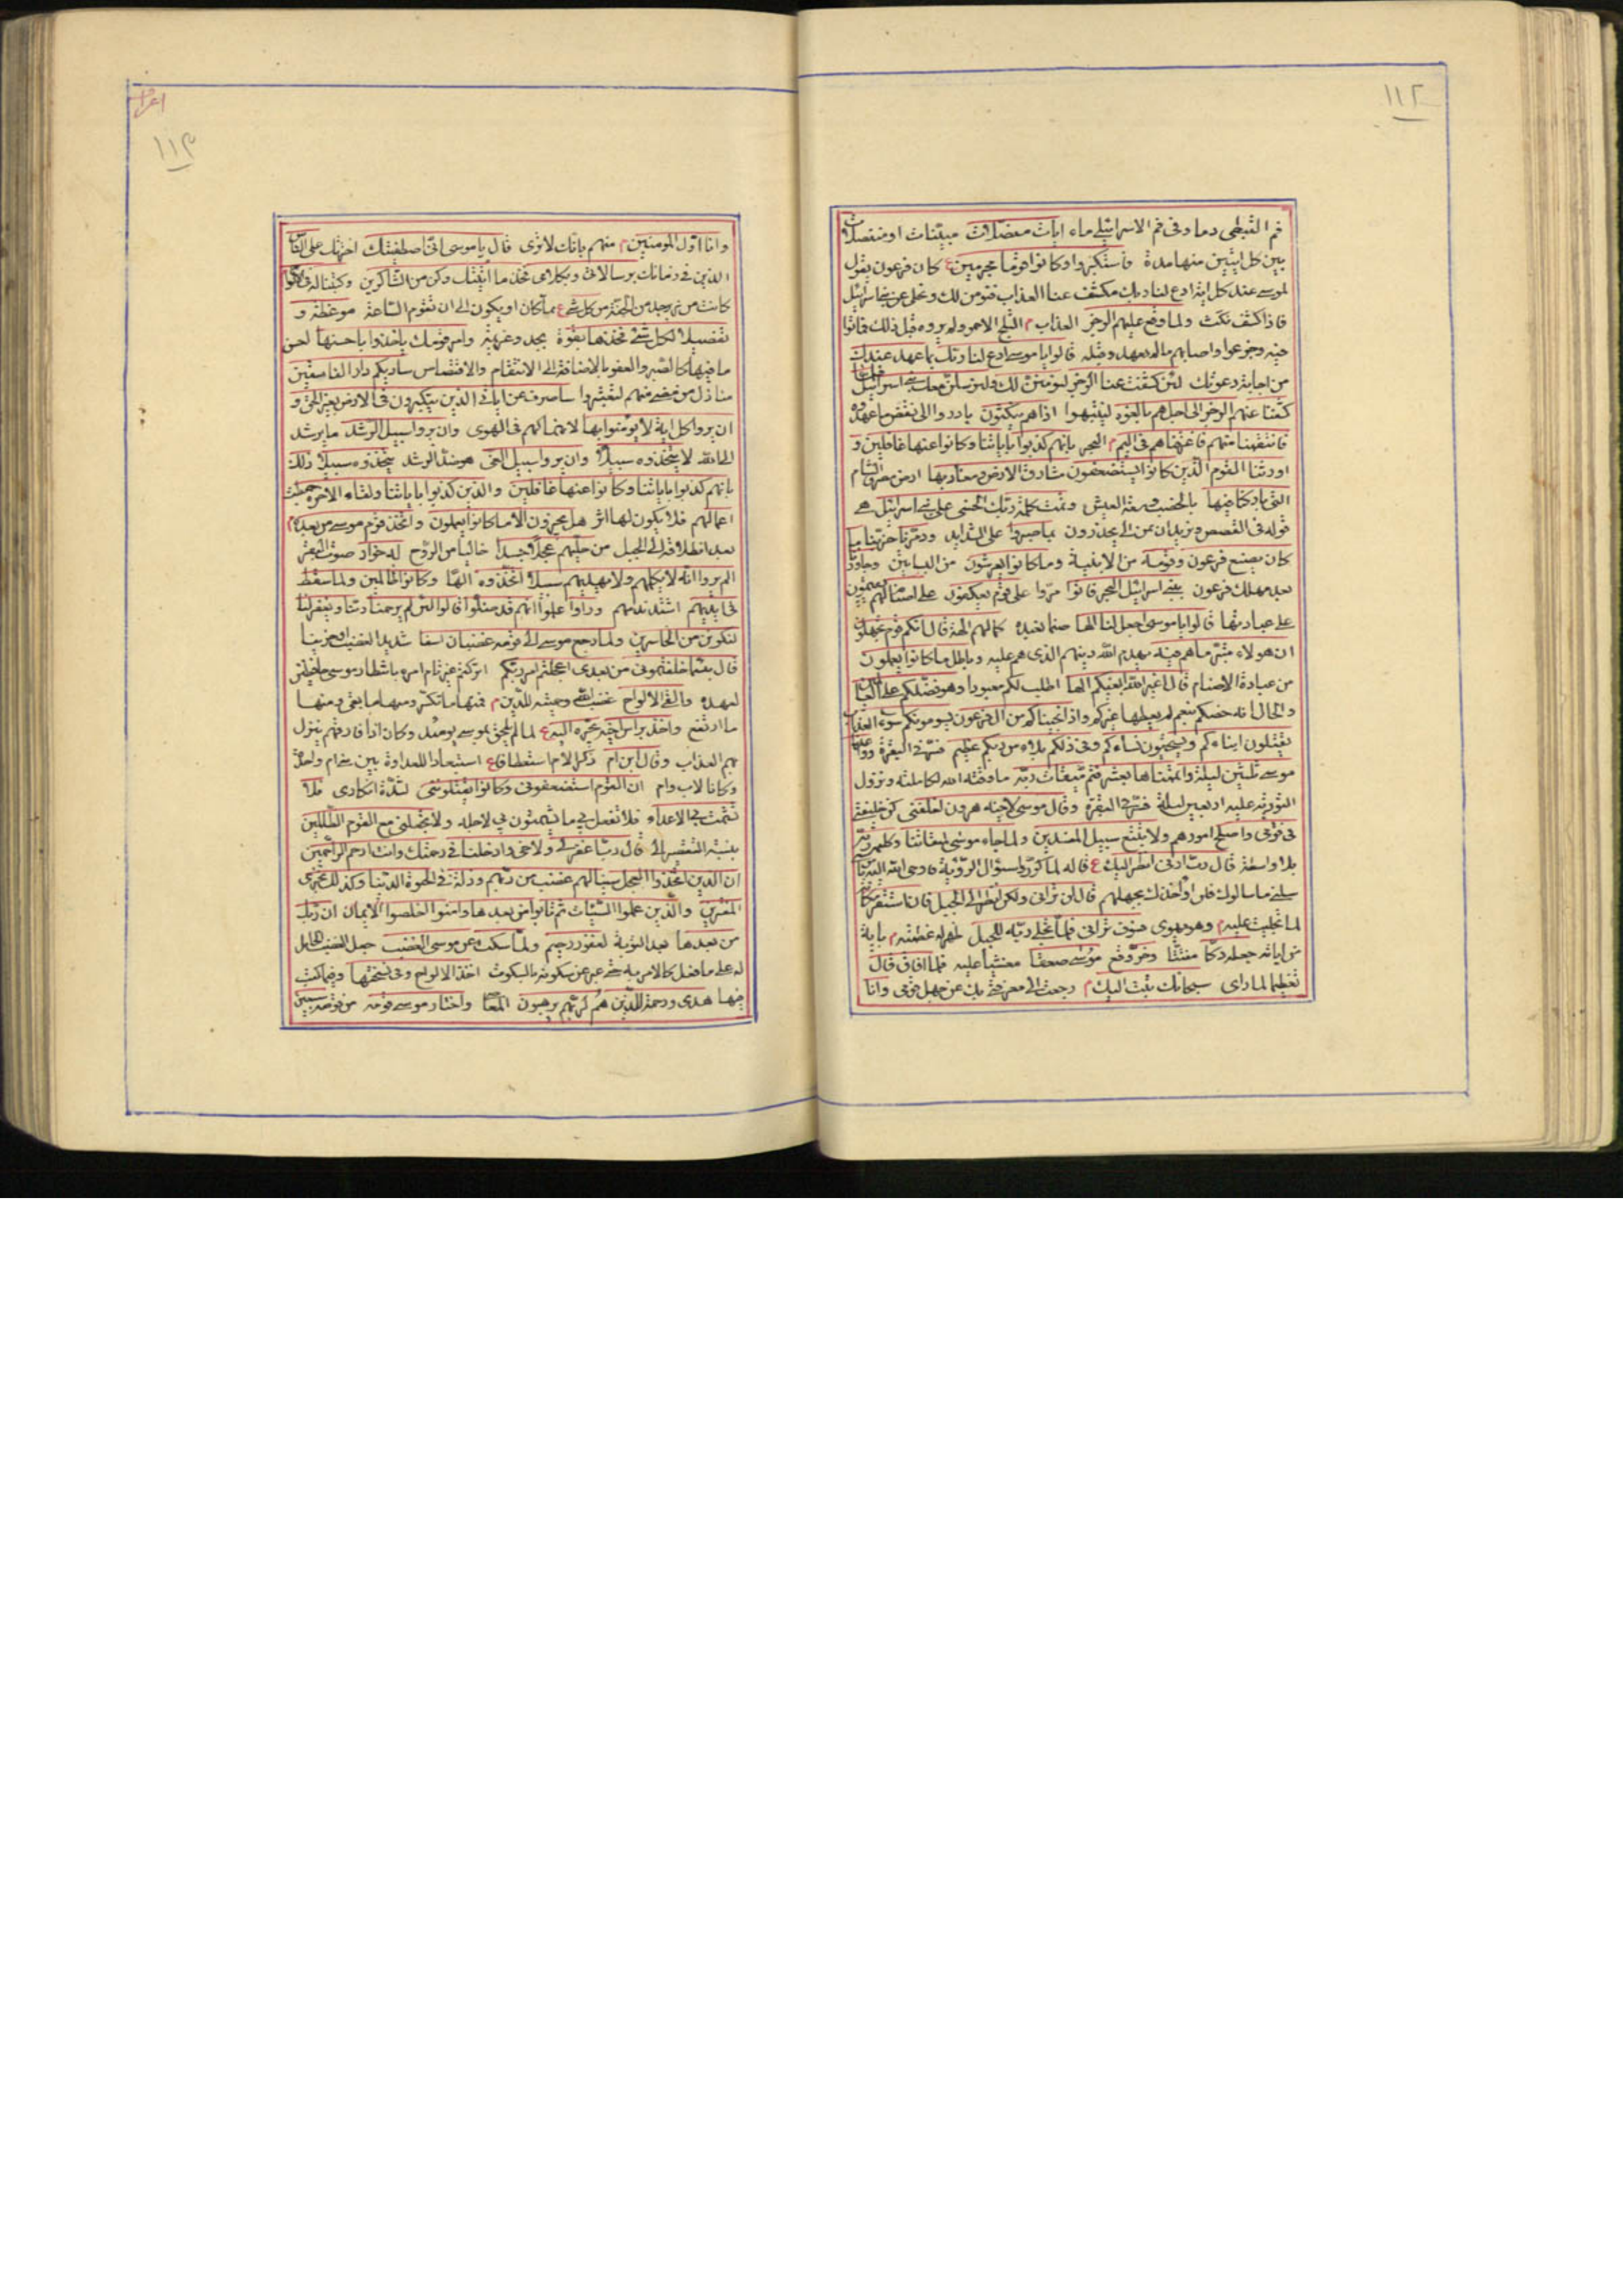 ١١٢
فم القبطى دما و فى فم الاسرائيلى ماء ايات مفصلات مبينات او منفصلات
بين كل ايتين منها مدة فاستكبروا و كانوا قوما مجرمين ع كان فرعون يقول
لموسى عند كل اية ادع لنا ربك يكشف عنا العذاب فنومن لك و نخلى عن بنى اسرائيل
فاذا كشف نكث ولما وقع عليهم الرجز العذاب م الثلج الاحمر و لم يروه قبل ذلك فماتوا
فيه و جزعوا و اصابهم ما لم يعهدوه قبله قالوا يا موسى ادع لنا ربك بما عهد عندك
من اجابة دعوتك لئن كشفت عنا الرجز لنومنن لك و لنرسلن معك بنى اسرائيل فلما
كشفنا عنهم الرجز الى اجل هم بالغوه اذا هم ينكثون بادروا الى نقض ما عهدوه
فانتقمنا منهم فاغرقناهم فى اليم م البحر بانهم كذبوا باياتنا و كانوا عنها غافلين و
اورثنا القوم الذين كانوا يستضعفون مشارق الارض و مغاربها ارض مصر و الشام
التى باركنا فيها بالخصب و سعة العيش و تمت كلمة ربك الحسنى على بنى اسرائيل هى
قوله فى القصص و نريد ان نمن الى يحذرون بما صبروا على الشدايد و دمرنا خربنا ما
كان يصنع فرعون و قومه من الابنية و ما كانوا يعرشون من البساتين و جاوزنا
بعد مهلك فرعون ببنى اسرائيل البحر فاتوا مروا على قوم يعكفون على اصنام لهم يقيمون
على عبادتها قالوا يا موسى اجعل لنا الها صنما نعبده كما لهم الهة قال انكم قوم تجهلون
ان هولاء متبر ما هم فيه يهدم الله دينهم الذى هم عليه و باطل ما كانوا يعملون
من عبادة الاصنام قال اغير الله ابغيكم الها اطلب لكم معبودا و هو فضلكم على العالمين
و الحال انه خصكم بنعم لم يعطها غيركم و اذ انجيناكم من ال فرعون يسومونكم سوء العذاب
يقتلون ابناءكم و يستحيون نساءكم و فى ذلكم بلاء من ربكم عظيم فسر فى البقرة و واعدنا
موسى ثلثين ليلة و اتممناها بعشر فتم ميقات ربه ما وقته الله لكلامه و نزول
التورية عليه اربعين ليلة فسر فى البقرة و قال موسى لاخيه هرون اخلفنى كن خليفتى
فى قومى و اصلح امورهم و لا تتبع سبيل المفسدين و لما جاء موسى لميقاتنا و كلمه ربه
بلا واسطة قال رب ارنى انظر اليك ع قاله لما كرروا سئوال الرؤية فاوحى الله اليه يا موسى
سلنى ما سالوك فلن اؤاخذك بجهلهم قال لن ترانى و لكن انظر الى الجبل فان استقر مكانه
لما تجليت عليه م و هو يهوى فسوف ترانى فلما تجلى ربه للجبل ظهر له عظمته م باية
من اياته جعله دكا مفتتا و خر وقع موسى صعقا مغشيا عليه فلما افاق قال
تعظيما لما راى سبحانك تبت اليك م رجعت الى معرفتى بك عن جهل قومى و انا
اعراف
١١٣
و انا اول المومنين م منهم بانك لا ترى قال يا موسى انى اصطفيتك اخترتك على الناس
الذين فى زمانك برسالاتى و بكلامى فخذ ما اتيتك و كن من الشاكرين و كتبنا له فى الالواح
كانت من زبرجد من الجنة من كل شىء ع بما كان او يكون الى ان تقوم الساعة موعظة و
تفصيلا لكل شىء فخذها بقوة بجد و عزيمة و امر قومك ياخذوا باحسنها احسن
ما فيها كالصبر و العفو بالاضافة الى الانتقام و الاقتصاص ساريكم دار الفاسقين
منازل من مضى منهم لتعتبروا ساصرف عن اياتى الذين يتكبرون فى الارض بغير الحق و
ان يروا كل اية لا يومنوا بها لانهماكهم فى الهوى و ان يروا سبيل الرشد ما يرشد
الى الله لا يتخذوه سبيلا و ان يروا سبيل الغى هو ضد الرشد يتخذوه سبيلا ذلك
بانهم كذبوا باياتنا و كانوا عنها غافلين و الذين كذبوا باياتنا و لقاء الاخرة حبطت
اعمالهم فلا يكون لها اثر هل يجزون الا ما كانوا يعملون و اتخذ قوم موسى من بعده م
بعد انطلاقه الى الجبل من حليهم عجلا جسدا خاليا من الروح له خوار صوت البقر
الم يروا انه لا يكلمهم و لا يهديهم سبيلا اتخذوه الها و كانوا ظالمين و لما سقط
فى ايديهم اشتد ندمهم و راوا علموا انهم قد ضلوا قالوا لئن لم يرحمنا ربنا و يغفر لنا
لنكونن من الخاسرين و لما رجع موسى الى قومه غضبان اسفا شديد الغضب او حزينا
قال بئسما خلفتمونى من بعدى اعجلتم امر ربكم اتركتم غير تام امره بانتظار موسى حافظين
لعهده و القى الالواح غضبا لله و حمية للدين م فمنها ما تكسر و منها ما بقى و منها
ما ارتفع و اخذ براس اخيه يجره اليه ع لما لم يلحق بموسى يومئذ و كان اذا فارقهم ينزل
بهم العذاب و قال ابن ام ذكر الام استعطافا ع استبعادا للعداوة بين بنى ام واحدة
و كانا لاب و ام ان القوم استضعفونى و كادوا يقتلوننى لشدة انكارى فلا
تشمت بى الاعداء فلا تفعل بى ما يشمتون بى لاجله و لا تجعلنى مع القوم الظالمين
بنسبة التقصير الى قال رب اغفر لى و لاخى و ادخلنا فى رحمتك و انت ارحم الراحمين
ان الذين اتخذوا العجل سينالهم غضب من ربهم و ذلة فى الحيوة الدنيا و كذلك نجزى
المفترين و الذين عملوا السيئات ثم تابوا من بعدها و امنوا اخلصوا الايمان ان ربك
من بعدها بعد التوبة لغفور رحيم و لما سكت عن موسى الغضب جعل الغضب الحامل
له على ما فعل كالامر به حتى عبر عن سكونه بالسكوت اخذ الالواح و فى نسختها و فيما كتب
فيها هدى و رحمة للذين هم لربهم يرهبون و اختار موسى قومه من قومه سبعين